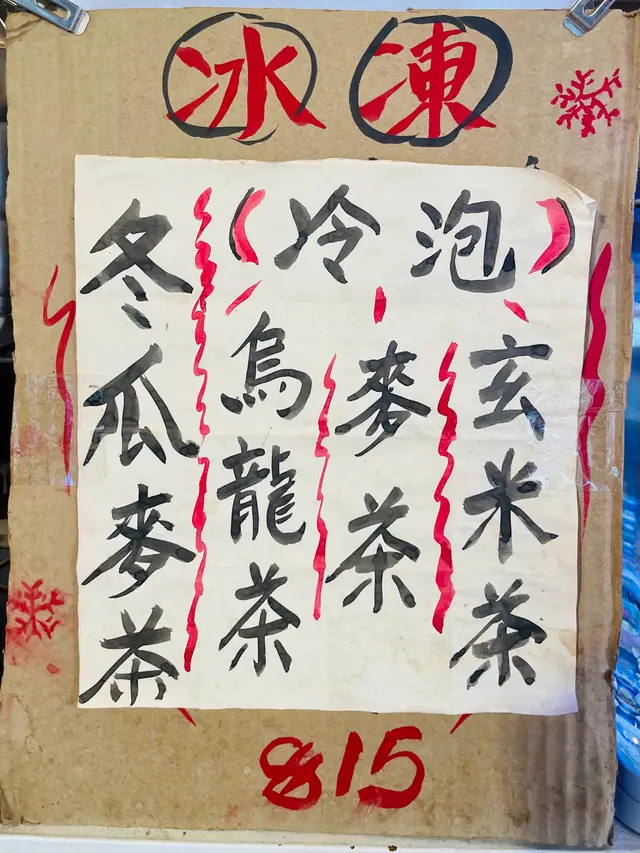 冰凍
（冷泡）
玄米茶
麥茶
烏龍茶
冬瓜麥茶
$15